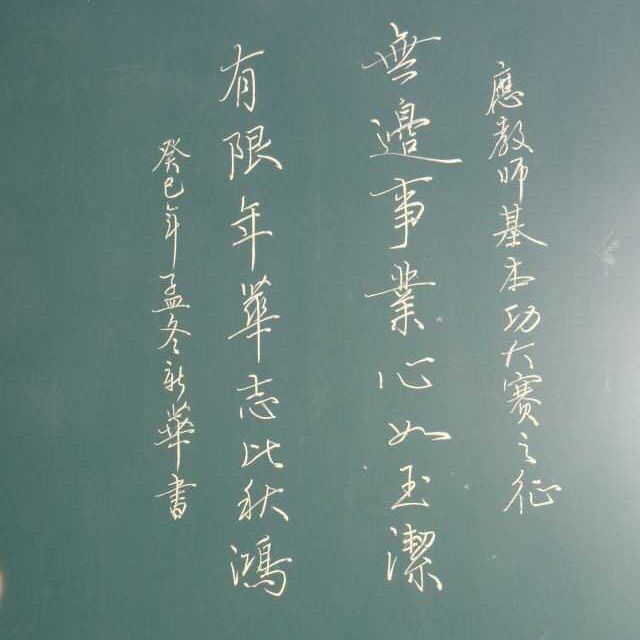 應教师基本功大赛之征
無邊事業心如玉潔
有限年華志比秋鴻
癸巳年孟冬新華書